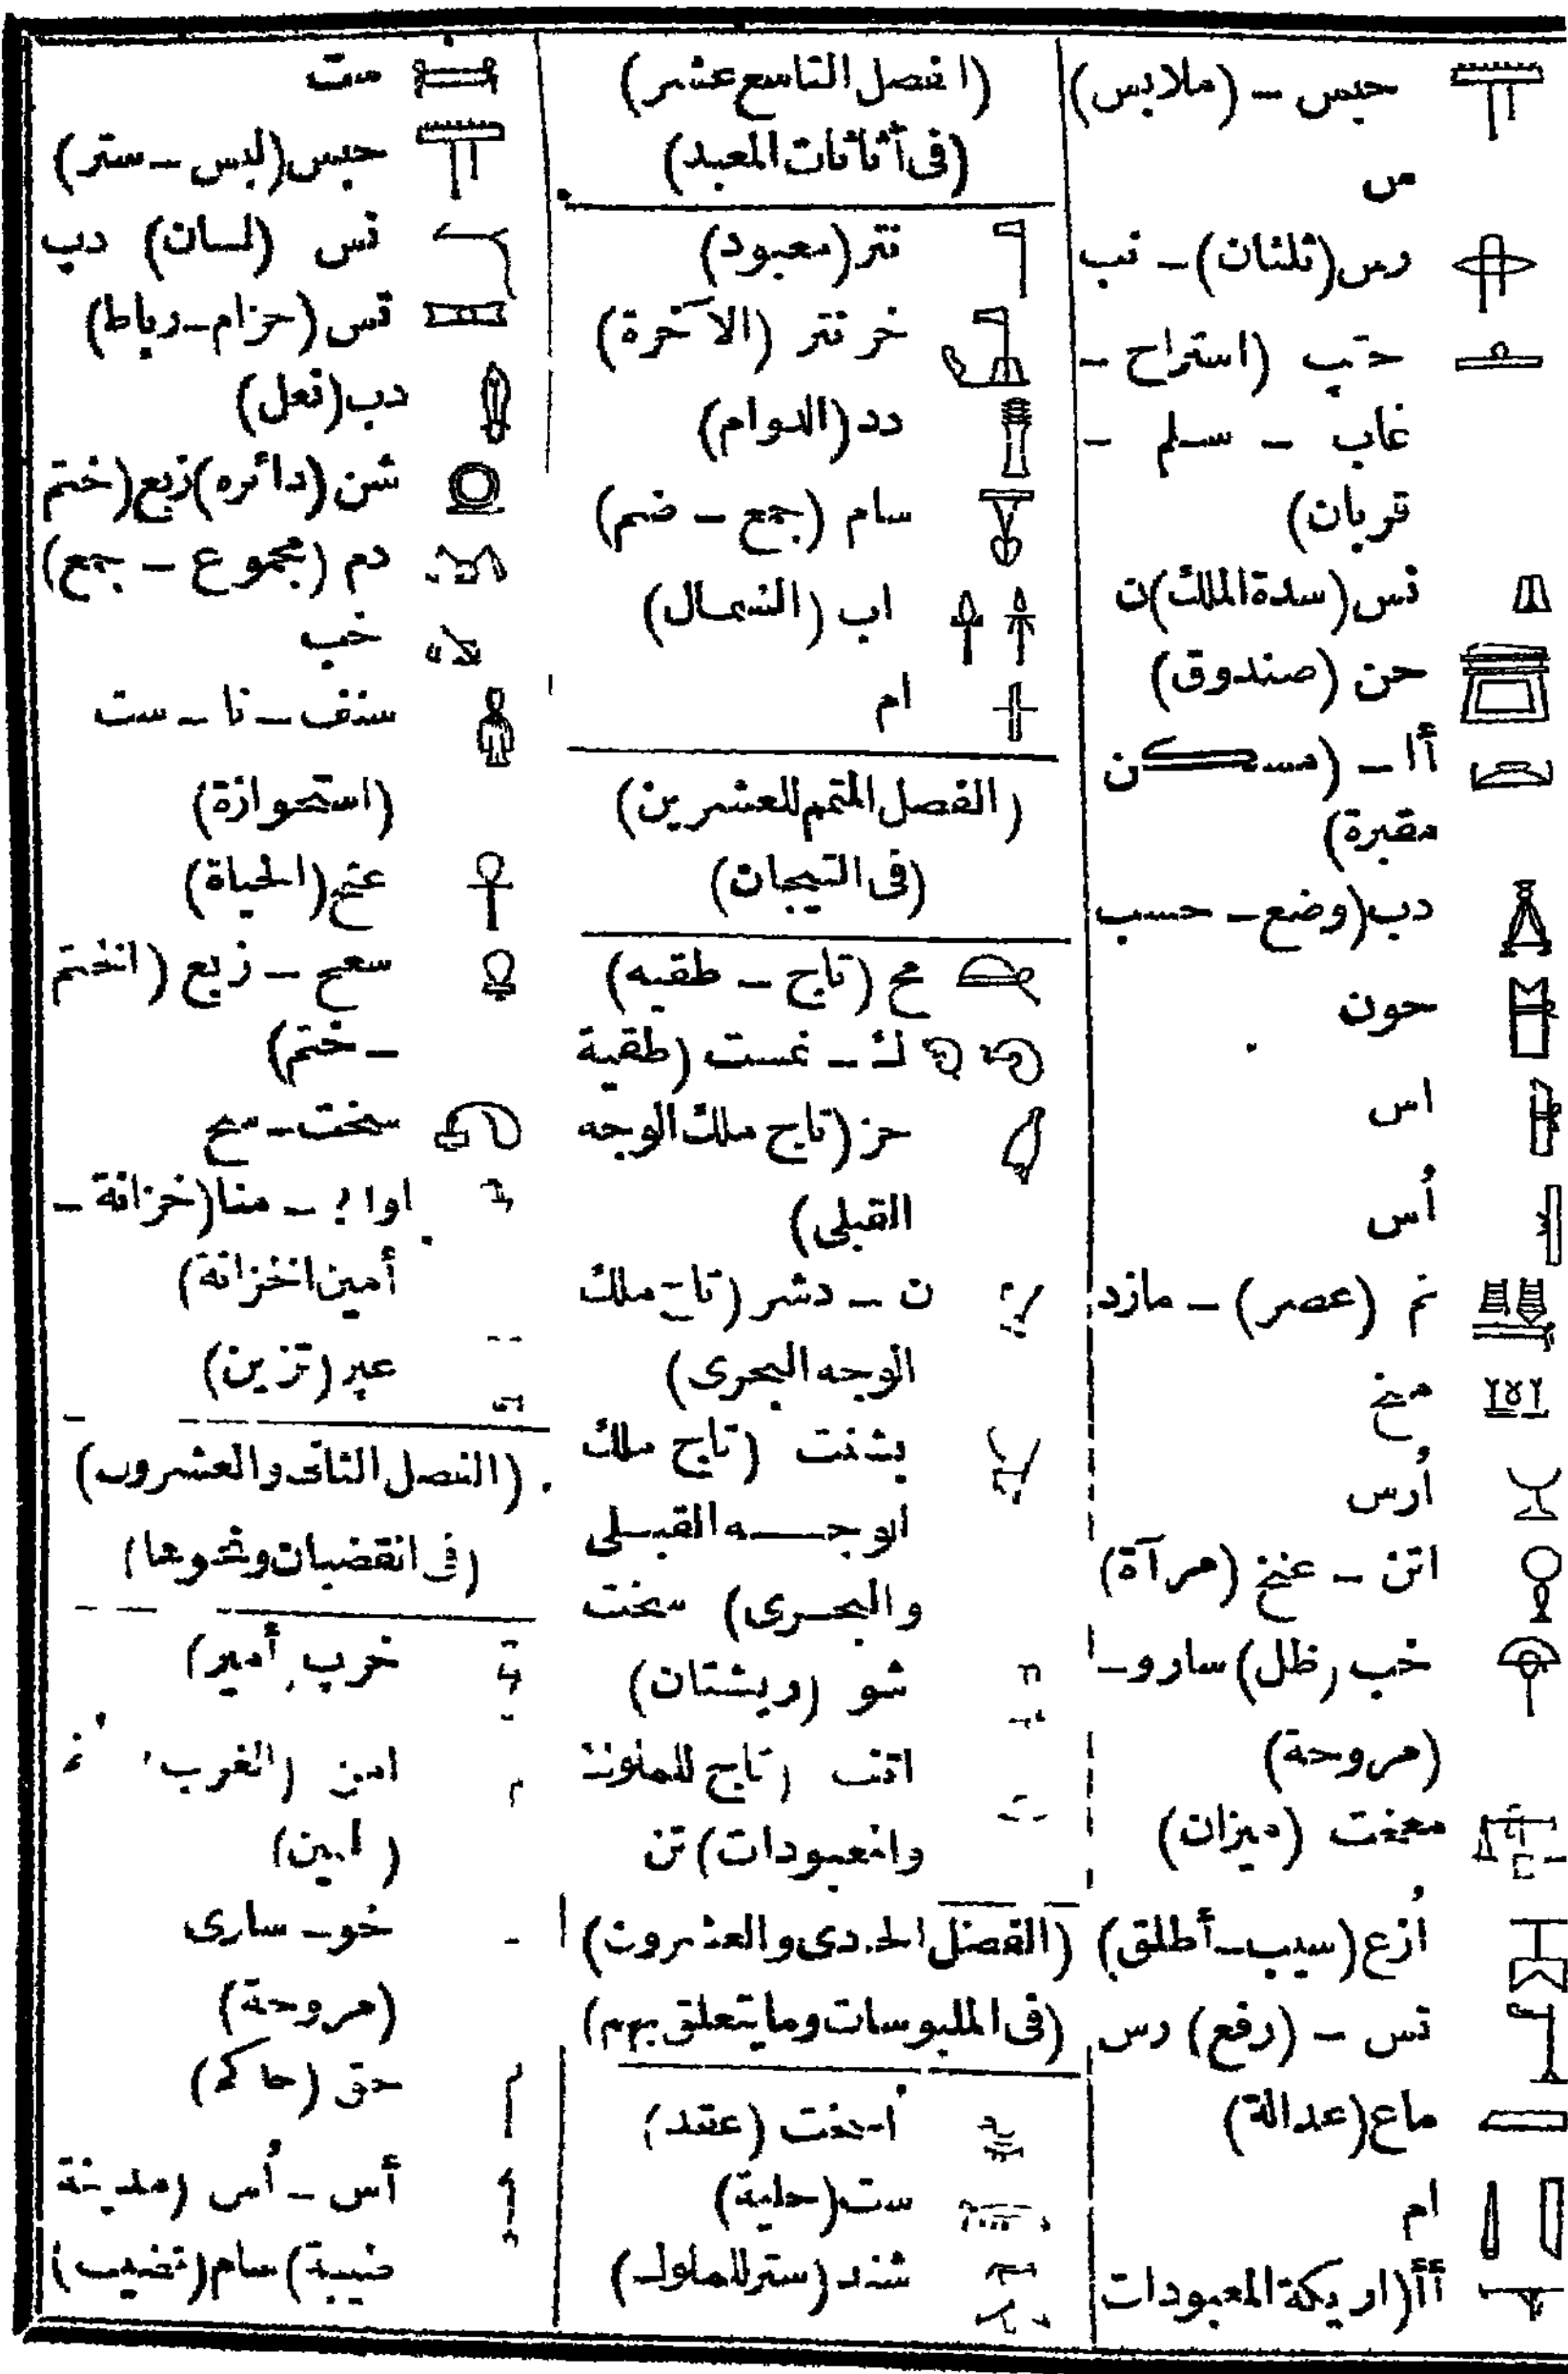 حبس – (ملابس)
س
رس (ثلثان) – نب
حتپ (استراح –
غاب – سلم –
قربان)
نس (سدة الملك) ن
حن (صندوق)
أا – (مسكن
مقبرة)
دب (وضع – حسب
حون
اس
أس
نم (عصر) – مازد
منخ
أرس
اتن – عنخ (مرآة)
خب (ظل) سارو –
(مروحة)
(ميزان)
أزع (سيب – أطلق)
تس – (رفع) رس
ماع (عدالة)
ام
أأ (اريكة المعبودات
(الفصل التاسع عشر)
(فى أثاثات المعبد)
نتر (معبود)
خر نتر (الآخرة)
دد (الدوام)
سام (جمع – ضم)
اب (الشمال)
ام
(الفصل المتمم للعشرين)
(فى التيجان)
مح (تاج – طقيه)
ك – نمست (طقية
حز (تاج ملك الوجه
القبلى)
ن – دشر (تاج ملك
الوجه البحرى)
بشنت (تاج ملك
الوجه القبلى
والبحرى) سخت
شو (ريشتان)
اتف (تاج للملوك
والمعبودات) تن
(الفصل الحادى والعشرون)
(فى الملبوسات وما يتعلق بهم)
(عقد)
ست (حلية)
شند (ستر للملوك)
ست
حبس (لبس – ستر)
نس (لسان) دپ
تس (حزام – رباط)
دب (نعل)
شن (دائره) زبع (ختم
دم (مجموع – جمع)
خب
سنف – نا – ست
(استحوازة)
عنخ (الحياة)
سعح – زبع (انختم
– ختم)
سخت – مح
اوا؟ – منا (خزانة –
أمين الخزانة)
عپر (تزين)
(الفصل الثانى والعشرون)
(فى القضبان ونحوها)
خرپ (أمير)
امن (الغرب
خو – سارى
(مروحة)
حق (حاكم)
أس – أس (مدينة
طيبة) سام (قضيب)